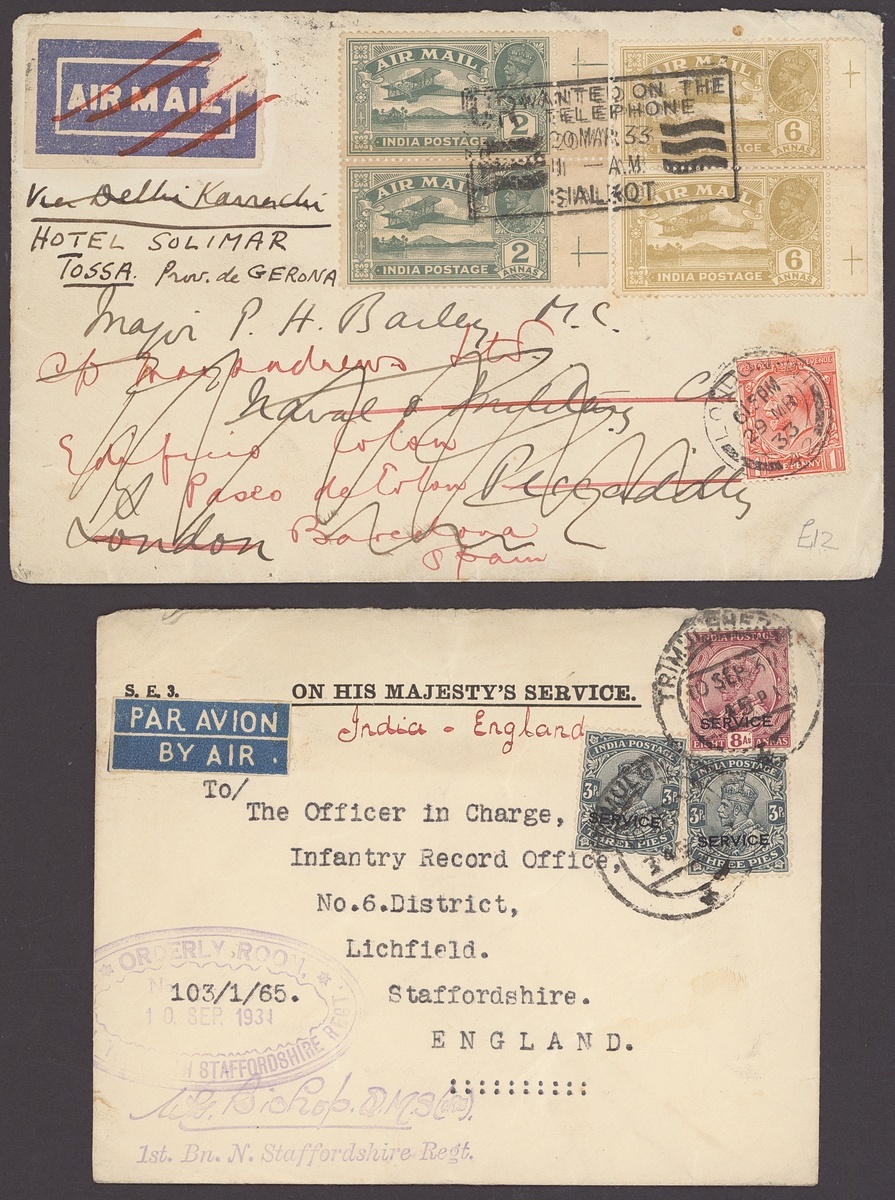 AIR MAIL
AIR MAIL
2
ANNAS
INDIA POSTAGE
AIR MAIL
2
ANNAS
INDIA POSTAGE
AIR MAIL
6
ANNAS
INDIA POSTAGE
AIR MAIL
6
ANNAS
INDIA POSTAGE
WANTED ON THE
TELEPHONE
20 MAR 33
11 — A.M.
SIALKOT
Via Delhi Karrachi
HOTEL SOLIMAR
TOSSA. Prov. de GERONA
Major P. H. Bailey M.C.
c/o Macandrews Ltd.
Naval & Military C
Edificio Colon
Paseo de Colon
Piccadilly
London
Barcelona
Spain
LONDON
6.15PM
29 MR
33
PENNY
£12
S. E. 3.
ON HIS MAJESTY'S SERVICE.
India - England
PAR AVION
BY AIR.
INDIA POSTAGE
SERVICE
EIGHT 8As ANNAS
10 SEP
INDIA POSTAGE
3P 3P
SERVICE
THREE PIES
INDIA POSTAGE
3P 3P
SERVICE
THREE PIES
To/
The Officer in Charge,
Infantry Record Office,
No.6.District,
Lichfield.
Staffordshire.
ENGLAND.
::::::::::
ORDERLY ROOM.
103/1/65.
10 SEP. 1931
STAFFORDSHIRE REGT.
Bishop. Q.M.S(
1st. Bn. N. Staffordshire Regt.